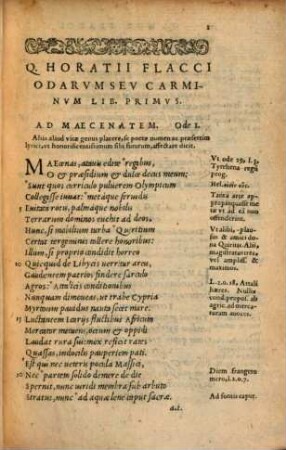 Q. HORATII FLACCI
ODARVM SEV CARMI-
NVM LIB. PRIMVS.
AD MAECENATEM. Ode I.
Aliis aliud vitæ genus placere, se poetæ nomen ac præsertim
lyrici, ex honorificentissimum sibi futurum, affectare dicit.
MAEcenas, atauis edite regibus,
O & præsidium & dulce decus meum;
Sunt quos curriculo puluerem Olympicum
Collegisse iuuat: metáque feruidis
5 Euitata rotis, palmaque nobilis
Terrarum dominos euehit ad deos.
Hunc, si mobilium turba Quiritium
Certat tergeminis tollere honoribus:
Illum, si proprio condidit horreo
10 Quicquid de Libycis uerritur areis,
Gaudentem patrios findere sarculo
Agros: Attalicis conditionibus
Nunquam dimoueas, ut trabe Cypria
Myrtoum pauidus nauta secet mare.
15 Luctantem Icariis fluctibus Africum
Mercator metuens, otium & oppidi
Laudat rura sui: mox reficit rates
Quassas, indocilis pauperiem pati.
Est qui nec ueteris pocula Massici,
20 Nec partem solido demere de die
Spernit, nunc uiridi membra sub arbuto
Stratus, nunc ad aquæ lene caput sacræ.
Vt ode 29. l. 3.
Tyrrhena regū
prog.
Tanta arte
Vt alibi, plau-
sus & amici do-
na Quiritis. Ali
magistratuū tri-
L. 2. o. 18. Attali
hæres. Nulla
cond. propos. di
ues agric. ad mer-
caturam auocet.
Diem frangere
mero, l. 2. o. 7.
Ad fontis caput.